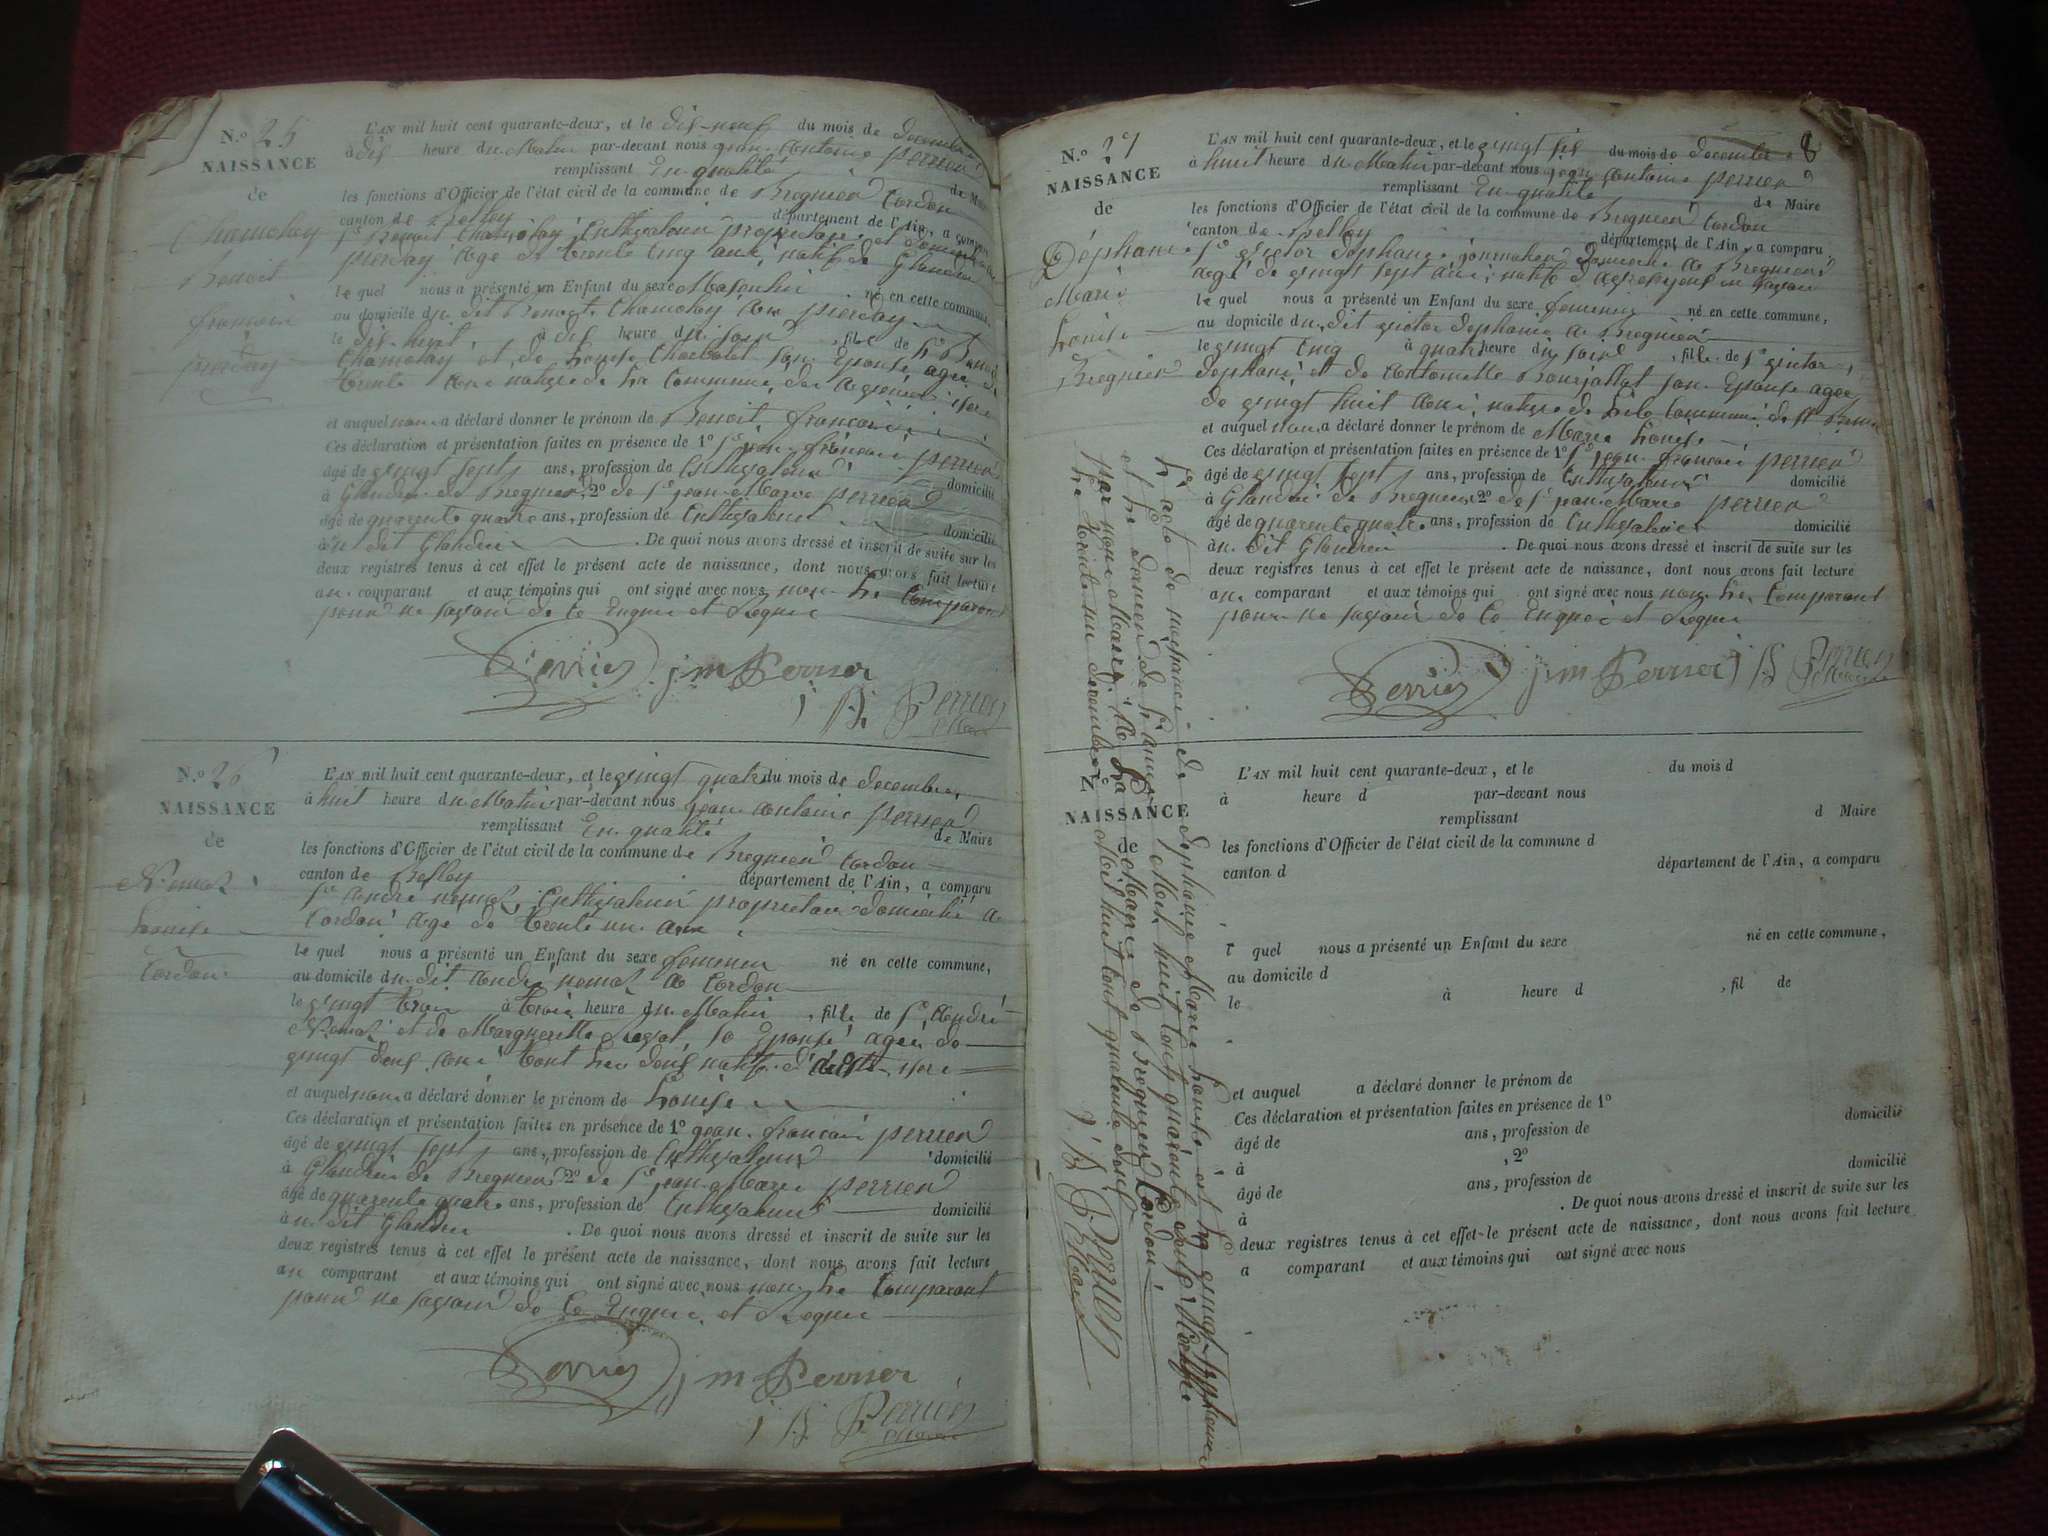 N.º 25
NAISSANCE
de
Chamolay
Benoit
françois
pierday
L'AN mil huit cent quarante-deux, et le dis-neuf du mois de decembre
à dis heure du Matin par-devant nous jean antoine perrier
remplissant En qualité de Maire
les fonctions d'Officier de l'état civil de la commune de Bregnier Cordon
canton de Belley département de l'Ain, a comparu
Sr Benoit Chamolay Culthivateur proprietaire et domicilié
pierday age de trente cinq ans, natif de Glandieu
le quel nous a présenté un Enfant du sexe Masculin né en cette commune,
au domicile du dit Benoit Chamolay au pierday
le dis-huit à dis heure du soir, fils de Sr Benoit
Chamolay et de Louise son Epouse agée de
trente ans native de la Commune isere
et auquel nous a déclaré donner le prénom de Benoit françois
Ces déclaration et présentation faites en présence de 1º Sr jean françois perrier
âgé de vingt sept ans, profession de Culthivateur domicilié
à Glandieu de Bregnier 2º de Sr jean Marie perrier
âgé de quarente quatre ans, profession de Culthivateur domicilié
à u dit Glandieu . De quoi nous avons dressé et inscrit de suite sur les
deux registres tenus à cet effet le présent acte de naissance, dont nous avons fait lecture
au comparant et aux témoins qui ont signé avec nous non Le Comparant
pour ne savoir de Ce Enquis et Requis
Perrier jm Perrier
j B Perrier
Maire
N.º 26
NAISSANCE
de
Nemoz
Louise
Cordon
L'AN mil huit cent quarante-deux, et le vingt quatre du mois de decembre
à huit heure du Matin par-devant nous jean antoine perrier
remplissant En qualité de Maire
les fonctions d'Officier de l'état civil de la commune de Bregnier Cordon
canton de Belley département de l'Ain, a comparu
Sr andré nemoz Culthivateur proprietaire domicilié a
Cordon age de trente un ans
le quel nous a présenté un Enfant du sexe femenin né en cette commune,
au domicile du dit andré nemoz a Cordon
le vingt trois à trois heure du Matin, fille de Sr André
Nemoz et de Margueritte sa Epouse agée de
vingt deux ans tout Les deux natif isere
et auquel nous a déclaré donner le prénom de Louise
Ces déclaration et présentation faites en présence de 1º jean françois perrier
âgé de vingt sept ans, profession de Culthivateur domicilié
à Glandieu de Bregnier 2º de Sr jean Marie perrier
âgé de quarente quatre ans, profession de Culthivateur domicilié
à u dit Glandieu . De quoi nous avons dressé et inscrit de suite sur les
deux registres tenus à cet effet le présent acte de naissance, dont nous avons fait lecture
au comparant et aux témoins qui ont signé avec nous non Le Comparant
pour ne savoir de Ce Enquis et Requis
Perrier jm Perrier
j B Perrier
Maire
8
N.º 27
NAISSANCE
de
Déphanie
Marie
Louise
Bregnier
L'AN mil huit cent quarante-deux, et le vingt sis du mois de decembre
à huit heure du Matin par-devant nous jean antoine perrier
remplissant En qualité de Maire
les fonctions d'Officier de l'état civil de la commune de Bregnier Cordon
canton de Belley département de l'Ain, a comparu
Sr victor dephanie journalier domicilié a Bregnier
agé de vingt sept ans, natif en savoie
le quel nous a présenté un Enfant du sexe femenin né en cette commune,
au domicile du dit victor dephanie a Bregnier
le vingt cinq à quatre heure du soir, fille de Sr victor
dephanie et de antoinette son Epouse agée
de vingt huit ans, native de Commune de St
et auquel nous a déclaré donner le prénom de Marie Louise
Ces déclaration et présentation faites en présence de 1º Sr jean françois perrier
âgé de vingt sept ans, profession de Culthivateur domicilié
à Glandieu de Bregnier 2º de Sr jean Marie perrier
âgé de quarente quatre ans, profession de Culthivateur domicilié
à u dit Glandieu . De quoi nous avons dressé et inscrit de suite sur les
deux registres tenus à cet effet le présent acte de naissance, dont nous avons fait lecture
au comparant et aux témoins qui ont signé avec nous non Le Comparant
pour ne savoir de Ce Enquis et Requis
Perrier jm Perrier j B Perrier
Maire
L'acte de naissance de dephanie Marie Louise est La vingt septieme
et La dernier de L'annee Mil huit cent quarente deux
par nous Maire de La Marie de Bregnier Cordon
Le trente un decembre Mil huit cent quarente deux
j B Perrier
Maire
N.º
NAISSANCE
de
L'AN mil huit cent quarante-deux, et le du mois d
à heure d par-devant nous
remplissant d Maire
les fonctions d'Officier de l'état civil de la commune d
canton d département de l'Ain, a comparu
l quel nous a présenté un Enfant du sexe né en cette commune,
au domicile d
le à heure d , fil de
et auquel a déclaré donner le prénom de
Ces déclaration et présentation faites en présence de 1º
âgé de ans, profession de domicilié
à , 2º
âgé de ans, profession de domicilié
à . De quoi nous avons dressé et inscrit de suite sur les
deux registres tenus à cet effet le présent acte de naissance, dont nous avons fait lecture
a comparant et aux témoins qui ont signé avec nous